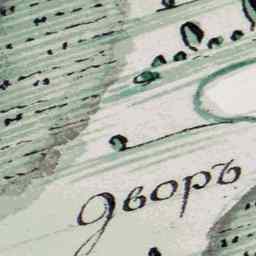 Дворъ